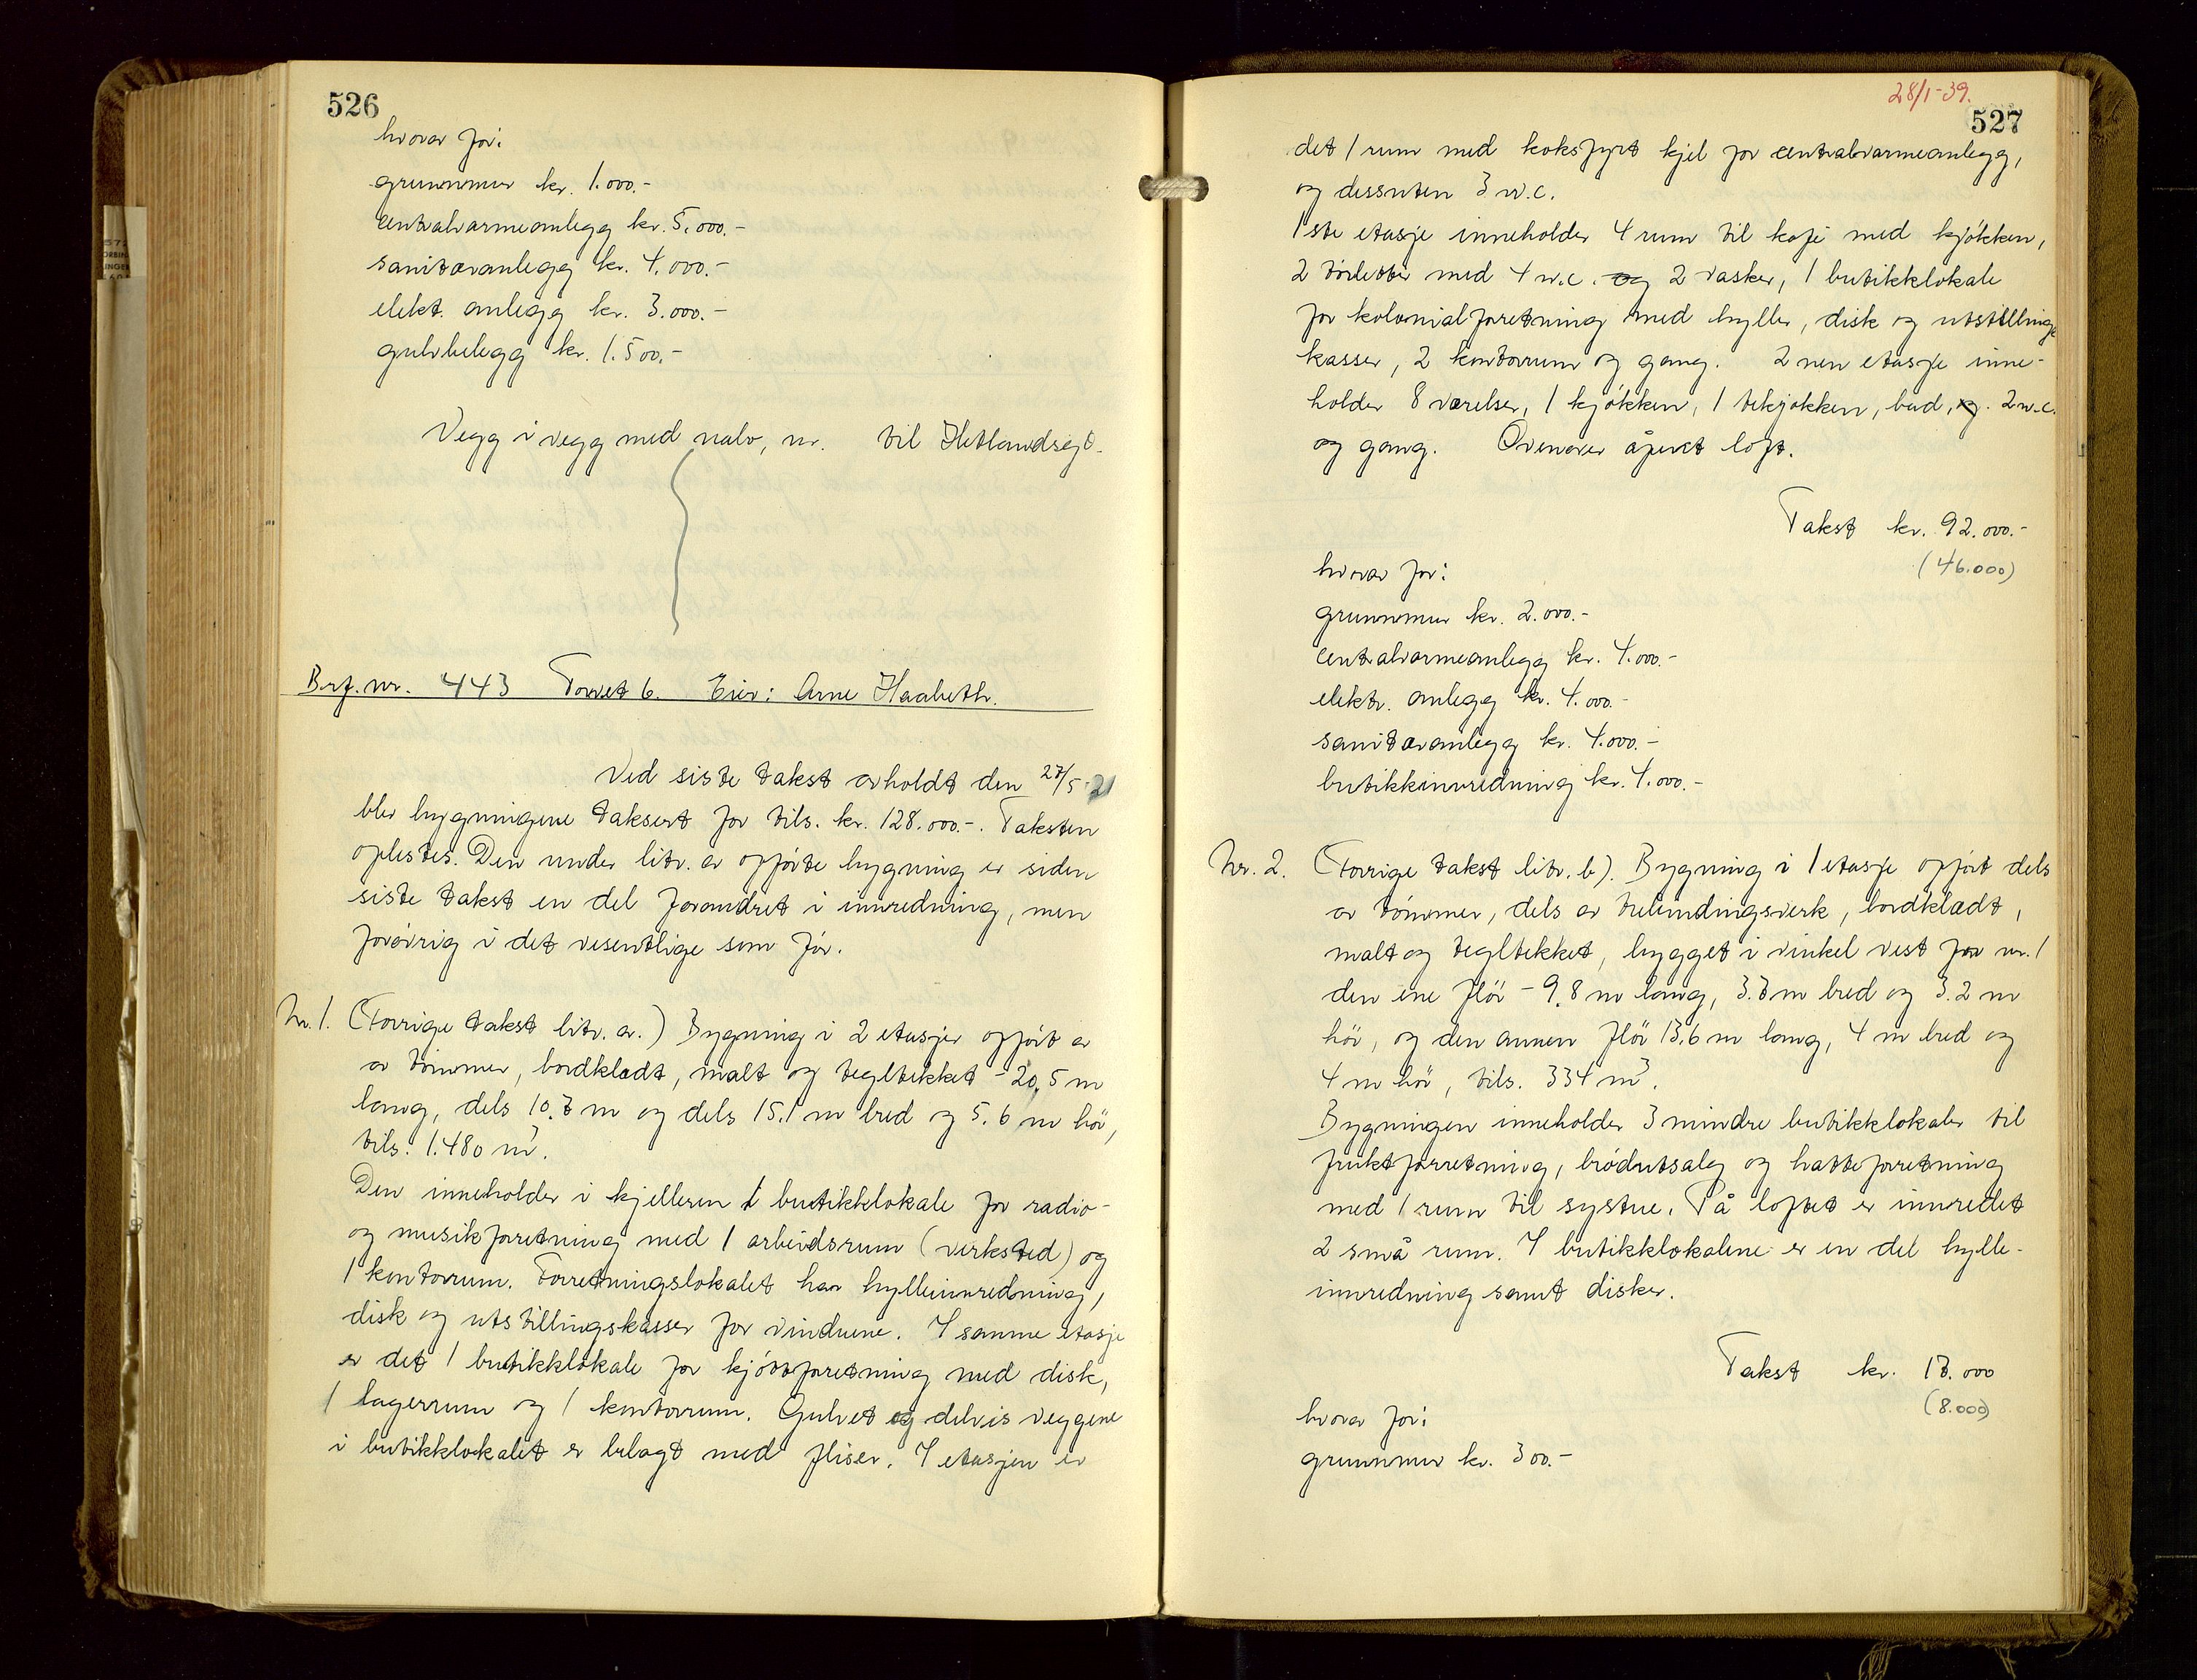 526
hvorav for:
grunnmur kr. 1.000.-
centralvarmeanlegg kr. 5.000.-
sanitæranlegg kr. 4.000.-
elekt. anlegg kr. 3.000.-
gulvbelegg kr. 1.500.-
Vegg i vegg med nabo, nr. til Hetlandsgt.
Brf. nr. 443 Torvet 6. Eier: Arne Haabeth.
Ved siste takst avholdt den 27/5-21
blev bygningene taksert for tils. kr. 128.000.-. Taksten
oplestes. Den under litr. a opførte bygning er siden
siste takst en del forandret i innredning, men
forøvrig i det vesentlige som før.
Nr. 1. (Forrige takst litr. a.) Bygning i 2 etasjer opført av
av tømmer, bordklædt, malt og tegltekket - 20,5 m
lang, dels 10.7 m og dels 15.1 m bred og 5.6 m høi,
tils. 1.480 m³.
Den inneholder i kjelleren 1 butikklokale for radio-
og musikforretning med 1 arbeidsrum (verksted) og
1 kontorrum. Forretningslokalet har hylleinnredning,
disk og utstillingskasser for vinduene. I samme etasje
er det 1 butikklokale for kjøttforretning med disk,
1 lagerrum og 1 kontorrum. Gulvet og delvis veggene
i butikklokalet er belagt med fliser. I etasjen er
28/1-39.
527
det 1 rum med koksfyrt kjel for centralvarmeanlegg,
og dessuten 3 w.c.
1ste etasje inneholder 4 rum til kafé med kjøkken,
2 toiletter med 4 w.c. og 2 vasker, 1 butikklokale
for kolonialforretning med hyller, disk og utstillings
kasser, 2 kontorrum og gang. 2nen etasje inne-
holder 8 værelser, 1 kjøkken, 1 tekjøkken, bad, og 2 w.c.
og gang. Ovenover åpent loft.
Takst kr. 92.000.-
(46.000)
hvorav for:
grunnmur kr. 2.000.-
centralvarmeanlegg kr. 4.000.-
elektr. anlegg kr. 4.000.-
sanitæranlegg kr. 4.000.-
butikkinnredning kr. 4.000.-
Nr. 2. (Forrige takst litr. b). Bygning i 1 etasje opført dels
av tømmer, dels av utbindingsverk, bordklædt,
malt og tegltekket, bygget i vinkel vest for nr. 1
den ene fløi - 9.8 m lang, 3.7 m bred og 3.2 m
høi, og den annen fløi 13.6 m lang, 4 m bred og
4 m høi, tils. 334 m³.
Bygningen inneholder 3 mindre butikklokaler til
fruktforretning, brødutsalg og hatteforretning
med 1 rum til systue. På loftet er innredet
2 små rum. I butikklokalene er en del hylle-
innredning samt disker.
Takst kr. 17.000
(8.000)
hvorav for:
grunnmur kr. 300.-